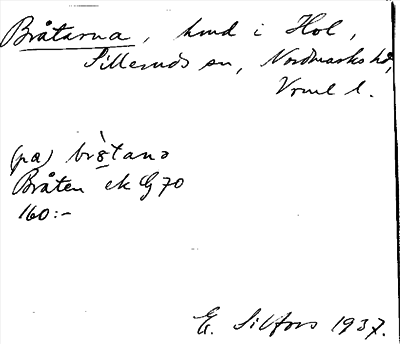 Bråtarna, hmd i Hol,
Silleruds sn, Nordmarks hd,
Vrml l.
(pa) brɔ̀tanə
Bråten ek G 70
160:-
E. Silfors 1937.